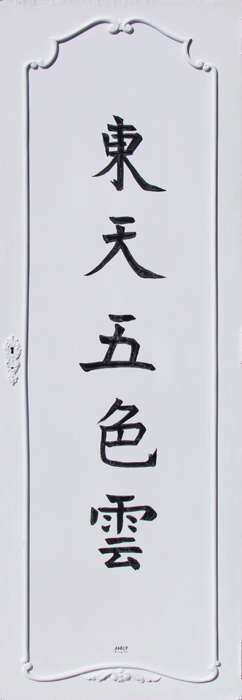 東天五色雲